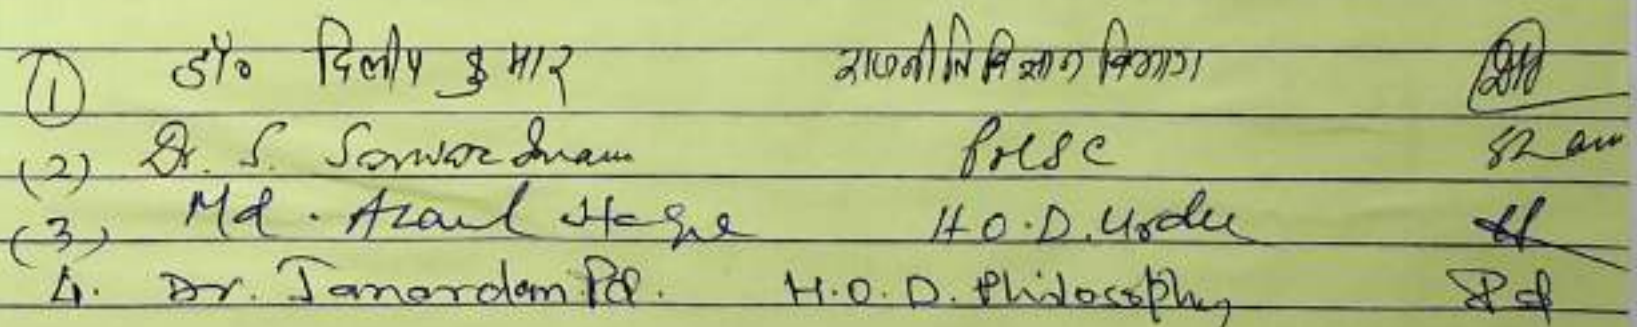 ① डॉ० दिलीप कुमार राजनीति विज्ञान विभाग
(2) Dr. S. Sarwar Imam Pol Sc
(3) Md. Azaul Haque H.O.D. Urdu
4. Dr. Janardan Pd. H.O.D. Philosophy